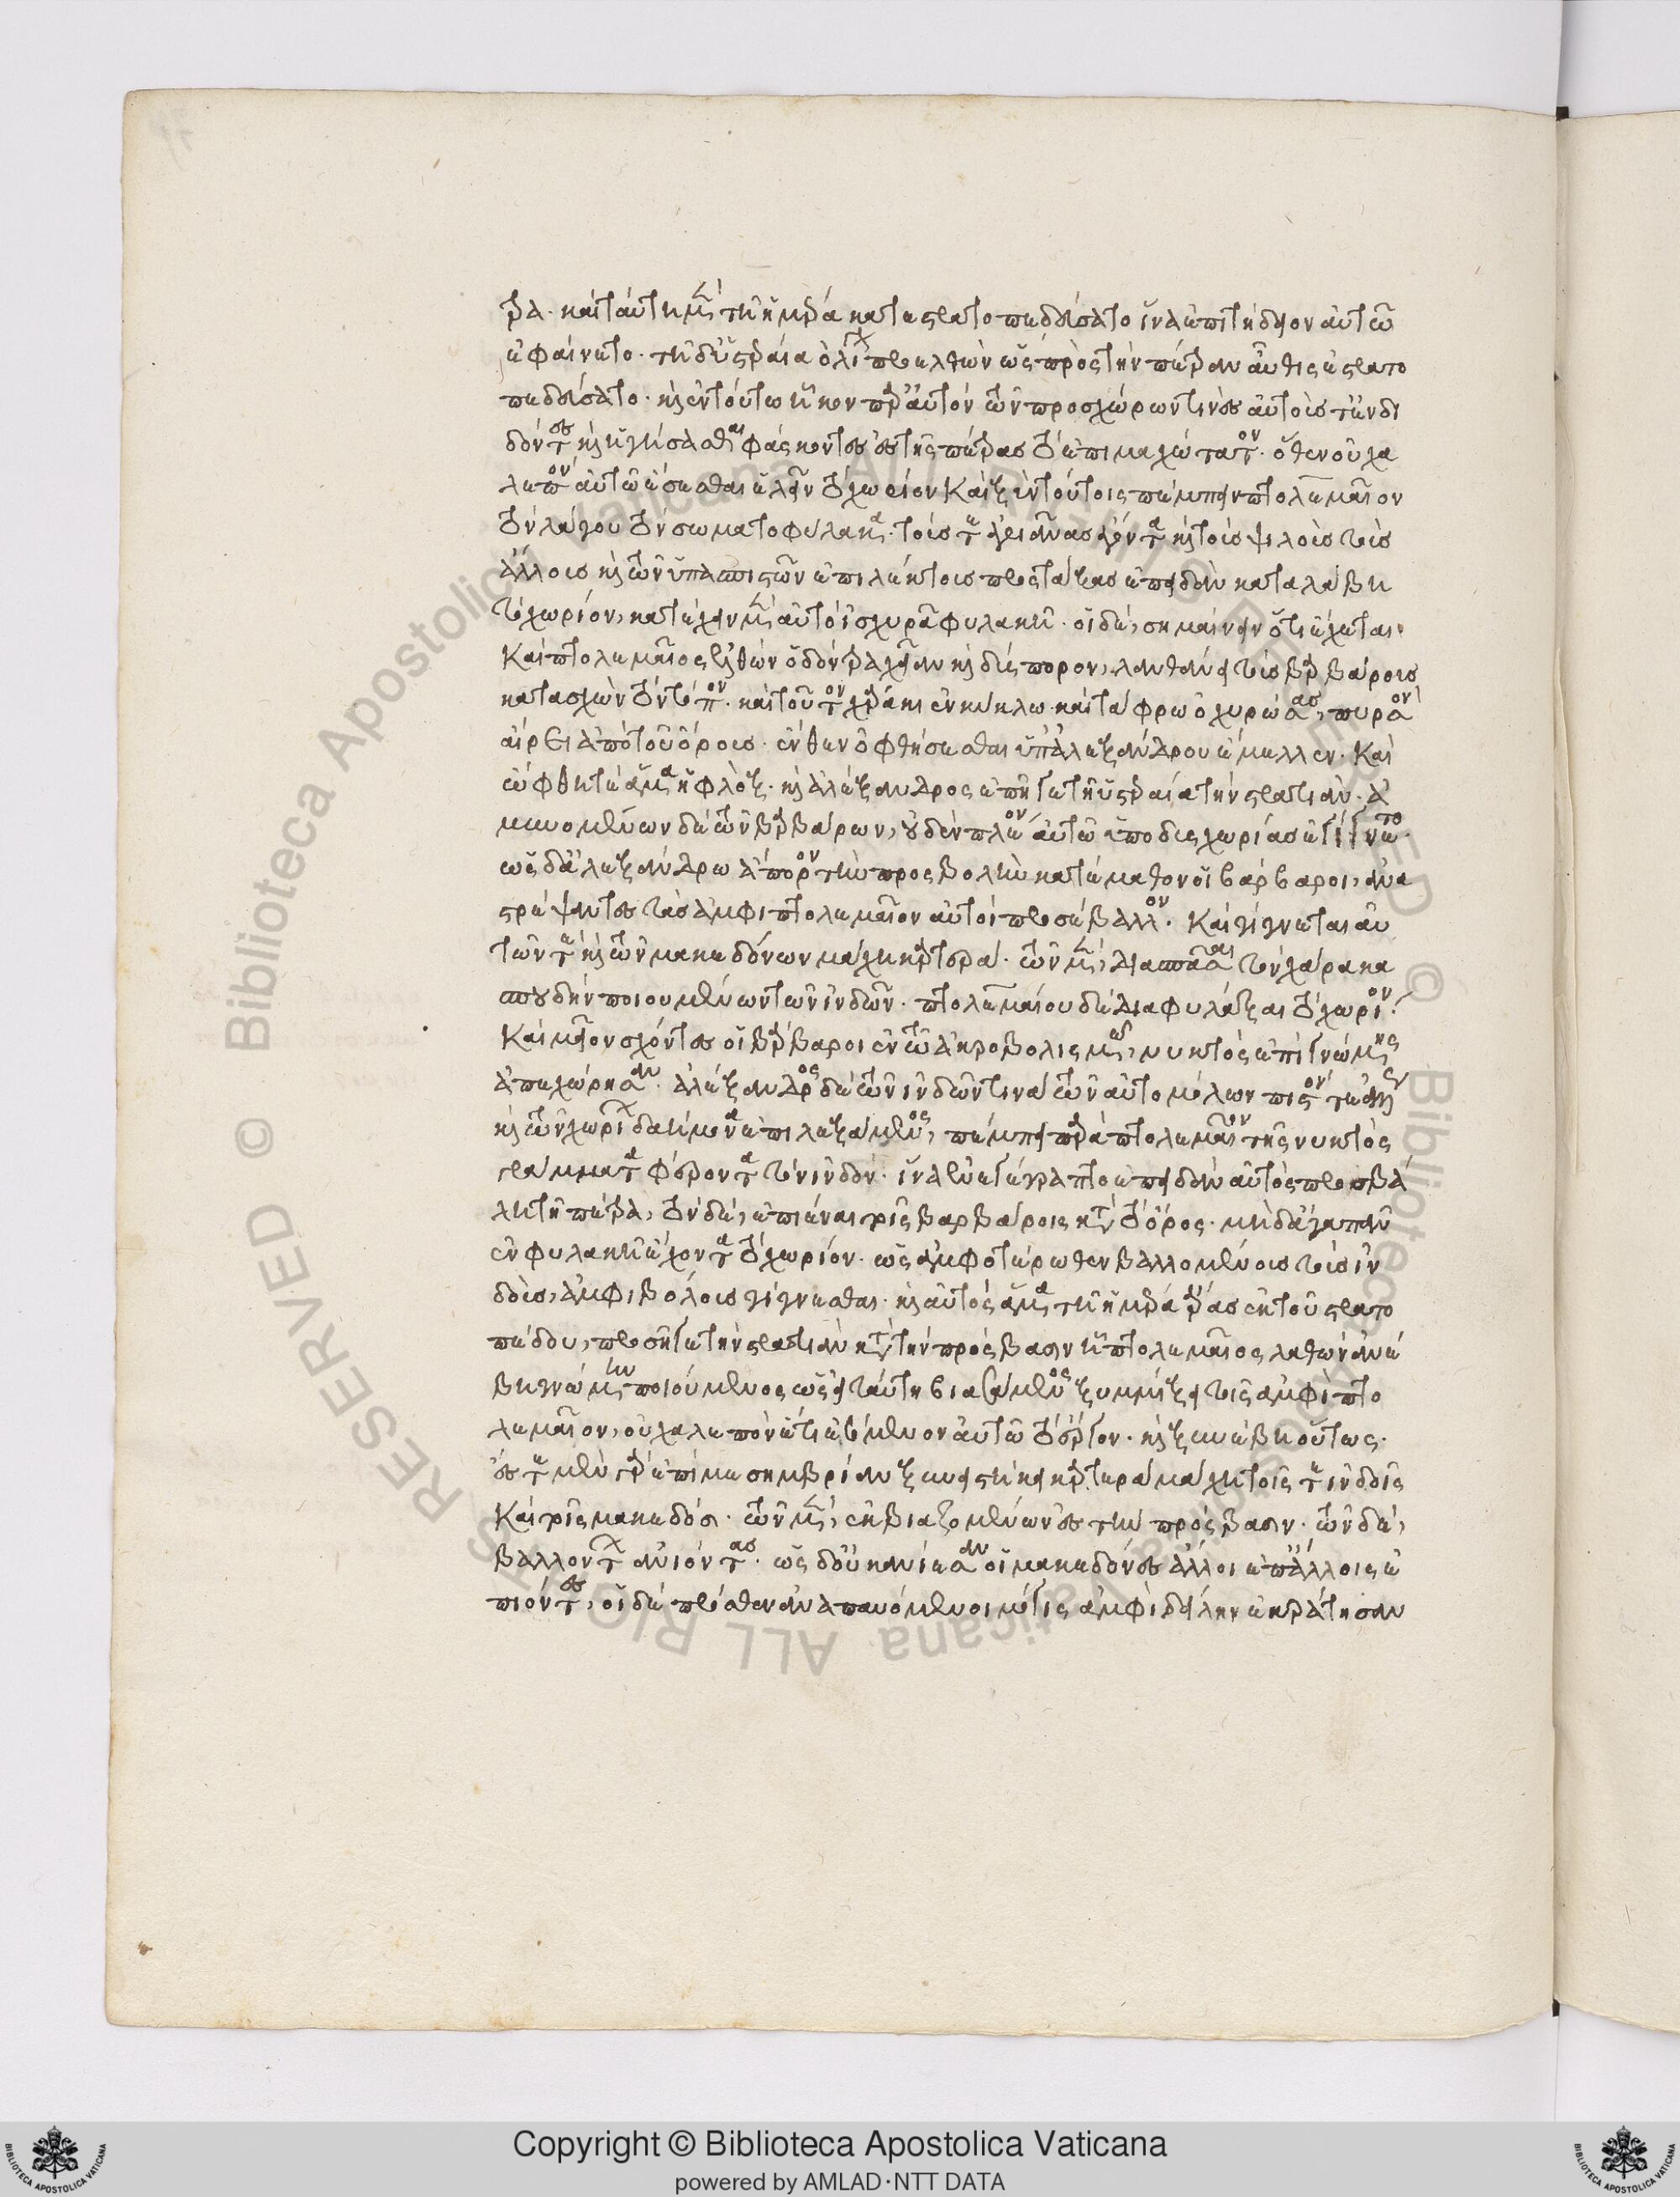 τρα. καὶ ταύτη μὲν τῆ ἡμέρα κατεστρατοπεδεύσατο ἵνα ἐπιτήδειον αὐτῶ
ἐφαίνετο. τῆ δ' ὑστεραία ὀλίγον προελθὼν ὡς πρὸς τὴν πέτραν αὖθις ἐστρατο
πεδεύσατο. καὶ ἐν τούτω ἧκον παρ' αὐτὸν τῶν προσχώρων τινὲς αὐτοὺς τε ἐνδι
δόντες καὶ ἡγήσασθαι φάσκοντες ἐς τῆς πέτρας τὸ ἐπιμαχώτατον. ὅθεν οὐ χα
λεπὸν αὐτῶ ἔσεσθαι ἑλεῖν τὸ χωρίον καὶ ξὺν τούτοις πέμπει πτολεμαῖον
τὸν λάγου τὸν σωματοφύλακα. τούς τε ἀγριᾶνας ἄγοντα καὶ τοὺς ψιλοὺς τοὺς
ἄλλους καὶ τῶν ὑπασπιστῶν ἐπιλέκτους προστάξας ἐπειδὰν καταλάβη
τὸ χωρίον, κατέχειν μὲν αὐτὸ ἰσχυρᾶ φυλακῆ. οἷ δὲ, σημαίνειν ὅτι ἔχεται.
Καὶ πτολεμαῖος ἐλθὼν ὁδὸν τραχεῖαν καὶ δύσπορον, λανθάνει τοὺς βαρβάρους
κατασχὼν τὸν τόπον. καὶ τοῦτον χάρακι ἐν κύκλω καὶ τάφρω ὀχυρώσας, πυρσὸν
αἴρει ἀπὸ τοῦ ὄρους. ἔνθεν ὀφθήσεσθαι ὑπ' ἀλεξάνδρου ἔμελλεν. Καὶ
ὤφθη τὲ ἅμα ἡ φλὸξ. καὶ ἀλέξανδρος ἐπῆγε τῆ ὑστεραία τὴν στρατιάν. ἀ
μυνομένων δὲ τῶν βαρβάρων, οὐδὲν πλέον αὐτῶ ὑπὸ δυσχωρίας ἐγίγνετο.
ὡς δ' ἀλεξάνδρω ἄπορον τὴν προσβολὴν κατέμαθον οἱ βάρβαροι, ἀνα
στρέψαντες τοῖς ἀμφὶ πτολεμαῖον αὐτοὶ προσέβαλλον. Καὶ γίγνεται αὐ
τῶν τε καὶ τῶν μακεδόνων μάχη καρτερά. τῶν μὲν, διασπάσαι τὸν χάρακα
σπουδὴν ποιουμένων τῶν ἰνδῶν. πτολεμαίου δὲ διαφυλάξαι τὸ χωρίον.
Καὶ μεῖον σχόντες οἱ βάρβαροι ἐν τῶ ἀκροβολισμῶ, νυκτὸς ἐπιγενομένης
ἀπεχώρησαν. ἀλέξανδρος δὲ τῶν ἰνδῶν τινα τῶν αὐτομόλων πιστόν τε ἄλλως
καὶ τῶν χωρίων δαήμονα ἐπιλεξάμενος, πέμπει παρὰ πτολεμαῖον τῆς νυκτὸς
γράμματα φέροντα τὸν ἰνδὸν. ἵνα ἐνεγέγραπτο ἐπειδὰν αὐτὸς προσβά
λη τῆ πέτρα, τὸν δὲ, ἐπιέναι τοῖς βαρβάροις κατὰ τὸ ὄρος. μὴ δ' ἀγαπᾶν
ἐν φυλακῆ ἔχοντα τὸ χωρίον. ὡς ἀμφοτέρωθεν βαλλομένους τοὺς ἰν
δοὺς, ἀμφιβόλους γίγνεσθαι. καὶ αὐτὸς ἅμα τῆ ἡμέρα ἄρας ἐκ τοῦ στρατο
πέδου, προσῆγε τὴν στρατιὰν κατὰ τὴν πρόσβασιν ἧ πτολεμαῖος λαθὼν ἀνέ
βη γνώμην ποιούμενος ὡς εἰ ταύτη βιασάμενος ξυμμίξει τοῖς ἀμφὶ πτο
λεμαῖον, οὐ χαλεπὸν ἔτι ἐσόμενον αὐτῶ τὸ ἔργον. καὶ ξυνέβη οὕτως.
ἔστε μὲν γὰρ ἐπὶ μεσημβρίαν ξυνειστήκει καρτερὰ μάχη τοῖς τε ἰνδοῖς
Καὶ τοῖς μακεδόσι. τῶν μὲν, ἐκβιαζομένων ἐς τὴν πρόσβασιν. τῶν δὲ,
βαλλόντων ἀνιόντας. ὡς δ' οὐκ ἀνίεσαν οἱ μακεδόνες ἄλλοι ἐπ' ἄλλοις ἐ
πιόντες, οἱ δὲ πρόσθεν ἀναπαυόμενοι μόγις ἀμφὶ δείλην ἐκράτησαν
Copyright © Biblioteca Apostolica Vaticana
powered by AMLAD·NTT DATA